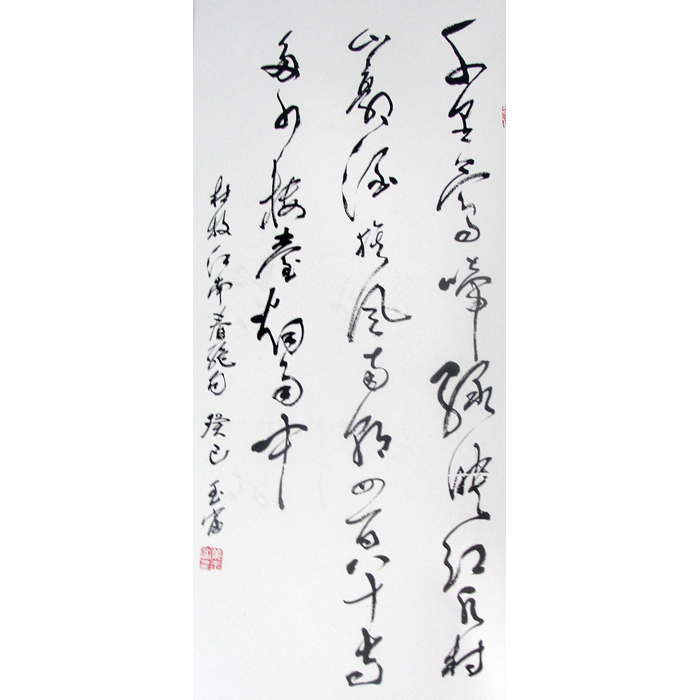 千里莺啼绿映红水村
山郭酒旗风南朝四百八十寺
多少楼臺烟雨中
杜牧江南春绝句 癸巳 玉富